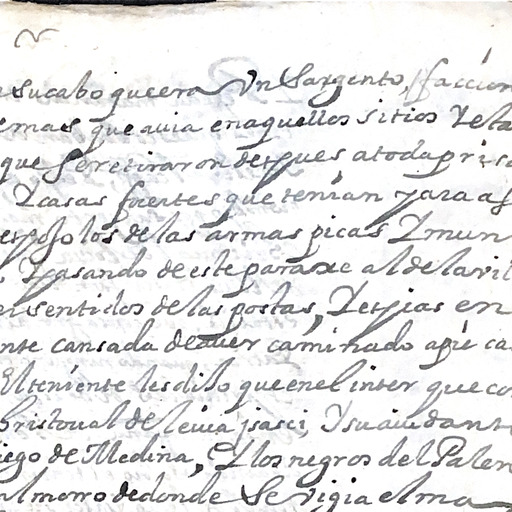 su cabo que era Vn Sargento, faccion
emas que auia en aquellos sitios Yela
que Se retiraron despues a toda prisa
Y casas fuertes que tenian para as
de las armas picas Y mun
Y pasando de este paraxe al de la vi
sentidos de las postas, Y espias en
nte cansada de auer caminado a pie ca
El teniente les dijo que en el inter que co
Cristoual de leiua isasi, Y su aiudante
iego de Medina, Y los negros del Palen
al morro de donde Se vigia el ma